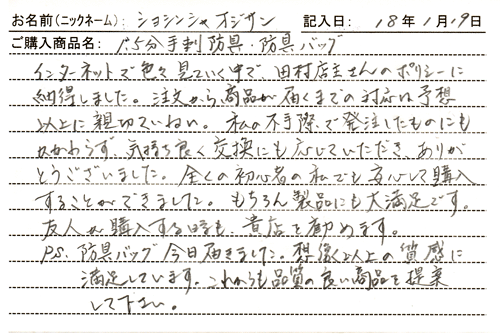 お名前(ニックネーム): ショシンシャオジサン 記入日: 18年1月19日
ご購入商品名: 1.5分手刺防具・防具バッグ
インターネットで色々見ていく中で、田村店主さんのポリシーに
納得しました。注文から商品が届くまでの対応は予想
以上に親切ていねい。私の不手際で発注したものにも
かかわらず、気持ち良く交換にも応じていただき、ありが
とうございました。全くの初心者の私でも安心して購入
することができました。もちろん製品にも大満足です。
友人が購入する時も、貴店を勧めます。
PS. 防具バッグ今日届きました。想像以上の質感に
満足しています。これからも品質の良い商品を提案
して下さい。